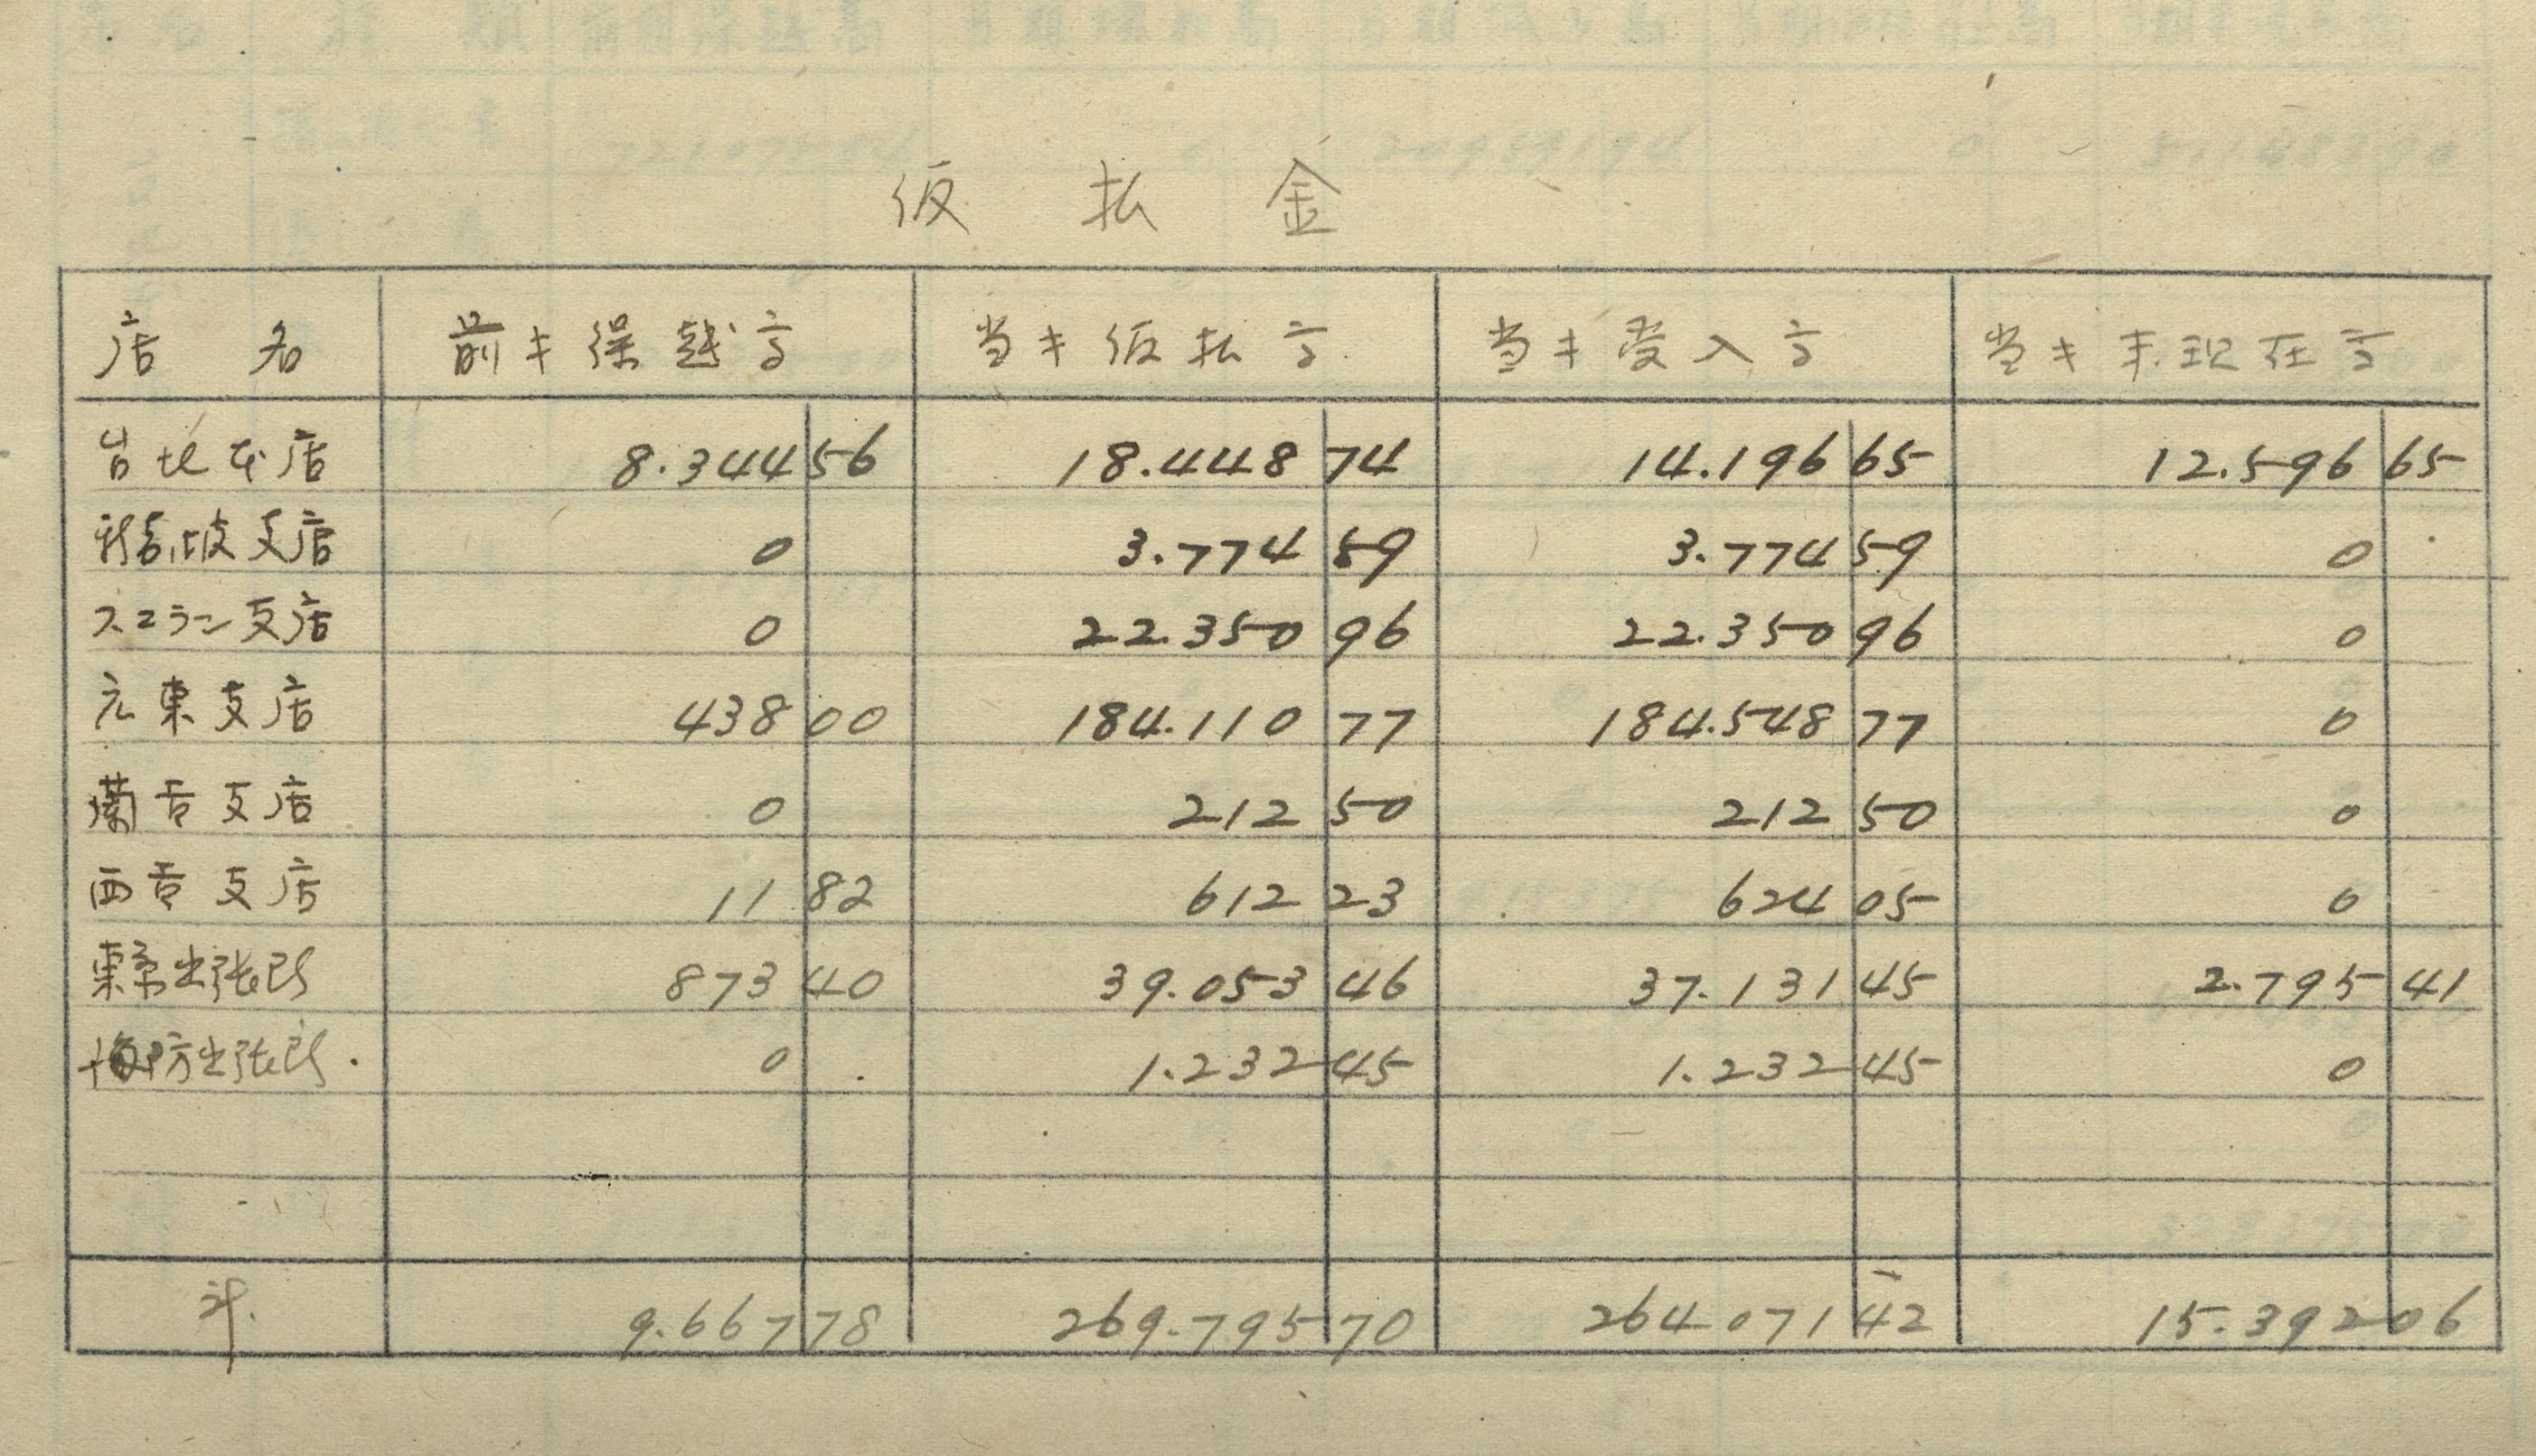 仮払金
店名 前キ繰越高 当キ仮払高 当キ受入高 当キ末現在高
台北本店 8.344 56 18.448 74 14.196 65 12.596 65
新嘉坡支店 0 3.774 59 3.774 59 0
スマラン支店 0 22.350 96 22.350 96 0
広東支店 438 00 184.110 77 184.548 77 0
蘭貢支店 0 212 50 212 50 0
西貢支店 11 82 612 23 624 05 0
東京出張所 873 40 39.053 46 37.131 45 2.795 41
海防出張所 0 1.232 45 1.232 45 0
計 9.667 78 269.795 70 264.071 42 15.392 06